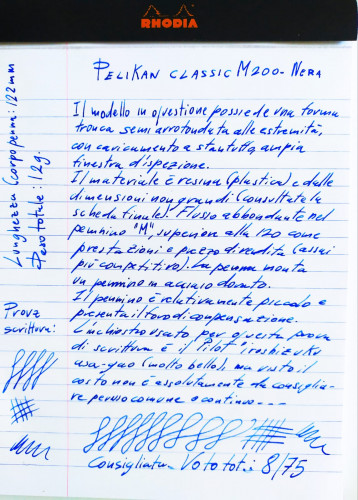 RHODIA
PELIKAN CLASSIC M200 - NERA
Il modello in questione possiede una forma
tronca semi arrotondata alle estremità,
con caricamento a stantuffo, ampia
finestra d'ispezione.
Il materiale è resina (plastica) e dalle
dimensioni non grandi (consultate la
scheda finale). Flusso abbondante nel
pennino "M", superiore alla 120 come
prestazioni e prezzo di vendita (assai
più competitivo). La penna monta
un pennino in acciaio dorato.
Il pennino è relativamente piccolo e
presenta il foro di compensazione.
L'inchiostro usato per questa prova
di scrittura è il "Pilot" iroshizuku
asa-gao (molto bello), ma visto il
costo non è assolutamente da consiglia-
re per uso comune o continuo ----
consigliata - Voto tot.: 8/75
Lunghezza (corpo penna: 122 mm
Peso totale: 12g.
Prova
scrittura: